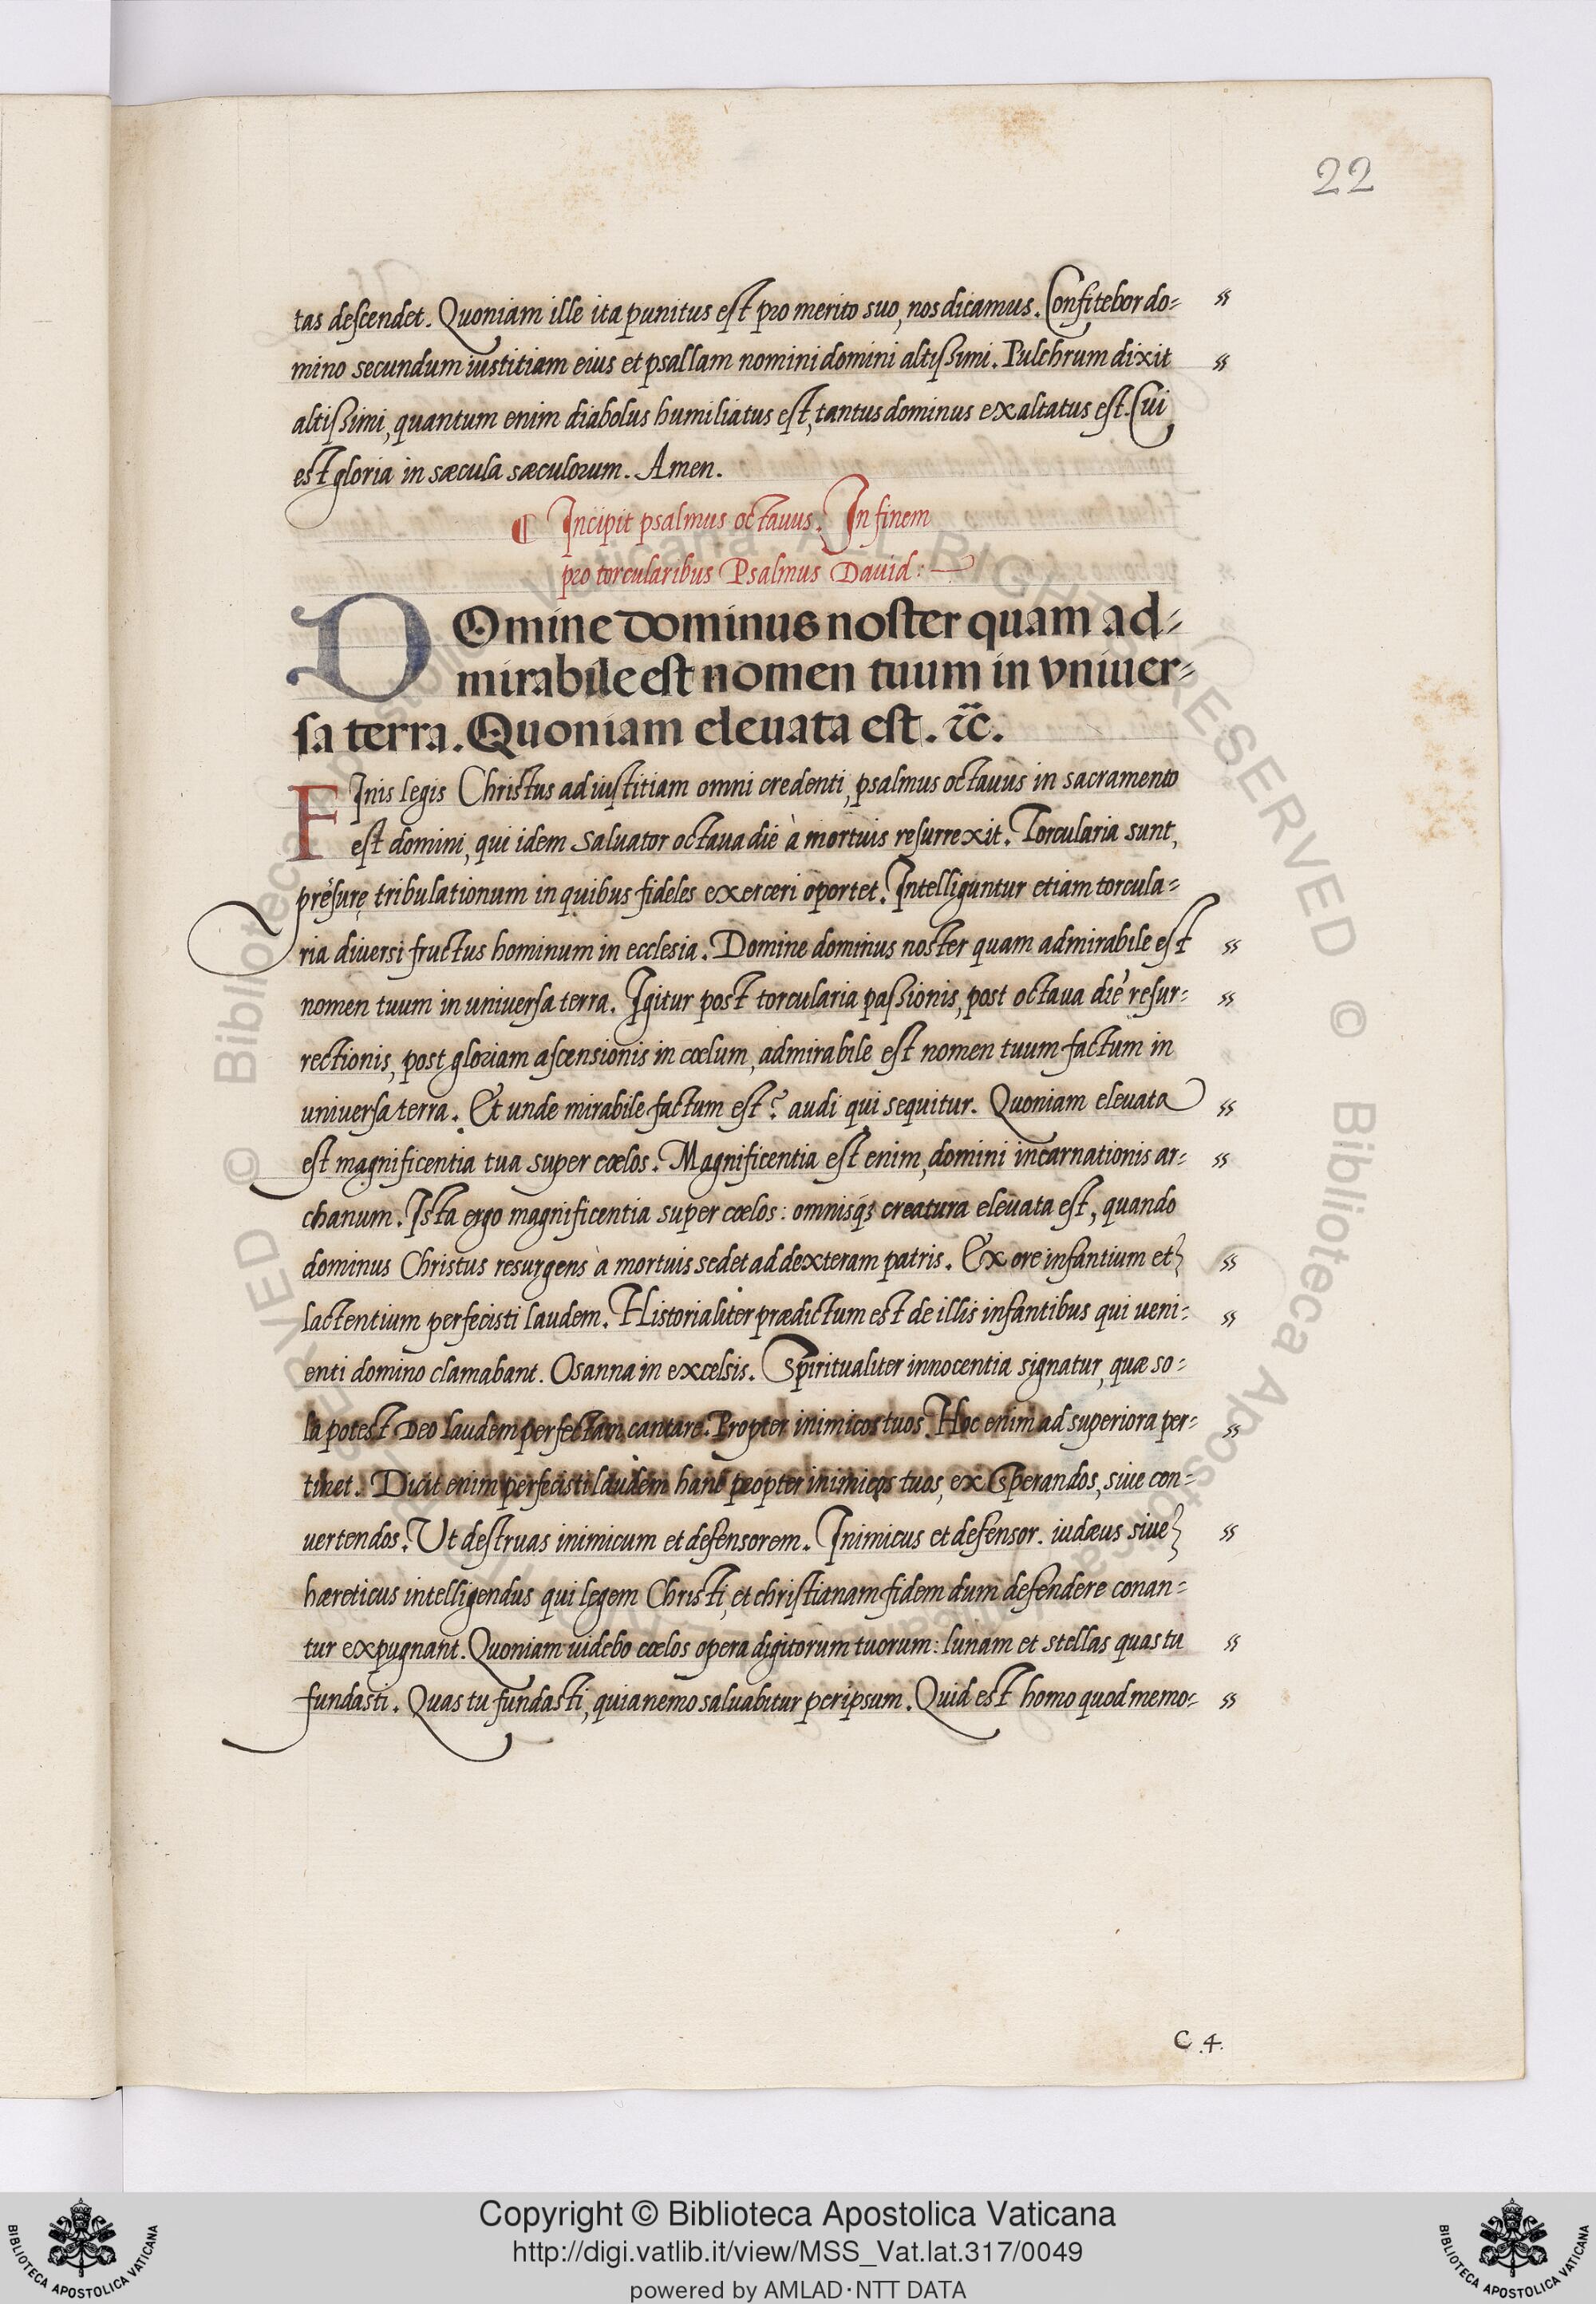 22
tas descendet. Quoniam ille ita punitus est pro merito suo, nos dicamus. Confitebor do-
mino secundum iustitiam eius et psallam nomini domini altissimi. Pulchrum dixit
altissimi, quantum enim diabolus humiliatus est, tantus dominus exaltatus est. Cui
est gloria in sæcula sæculorum. Amen.
¶ Incipit psalmus octauus. In finem
pro torcularibus Psalmus Dauid:
DOmine dominus noster quam ad-
mirabile est nomen tuum in vniuer-
sa terra. Quoniam eleuata est. &c.
FInis legis Christus ad iustitiam omni credenti, psalmus octauus in sacramento
est domini, qui idem saluator octaua die à mortuis resurrexit. Torcularia sunt,
presurę tribulationum in quibus fideles exerceri oportet. Intelliguntur etiam torcula-
ria diuersi fructus hominum in ecclesia. Domine dominus noster quam admirabile est
nomen tuum in uniuersa terra. Igitur post torcularia passionis, post octaua diē resur-
rectionis, post gloriam ascensionis in cœlum, admirabile est nomen tuum factum in
uniuersa terra. Et unde mirabile factum est? audi qui sequitur. Quoniam eleuata
est magnificentia tua super cœlos. Magnificentia est enim, domini incarnationis ar-
chanum. Ista ergo magnificentia super cœlos: omnisq; creatura eleuata est, quando
dominus Christus resurgens à mortuis sedet ad dexteram patris. Ex ore infantium et
lactentium perfecisti laudem. Historialiter prædictum est de illis infantibus qui ueni-
enti domino clamabant. Osanna in excelsis. Spiritualiter innocentia signatur, quæ so-
la potest Deo laudem perfectam cantare. Propter inimicos tuos. Hoc enim ad superiora per-
tinet. Dicit enim perfecisti laudem hanc propter inimicos tuos, exsperandos, siue con-
uertendos. Ut destruas inimicum et defensorem. Inimicus et defensor. iudæus siue
hæreticus intelligendus qui legem Christi, et christianam fidem dum defendere conan-
tur expugnant. Quoniam uidebo cœlos opera digitorum tuorum: lunam et stellas quas tu
fundasti. Quas tu fundasti, quia nemo saluabitur per ipsum. Quid est homo quod memo-
C.4.
Copyright © Biblioteca Apostolica Vaticana
http://digi.vatlib.it/view/MSS_Vat.lat.317/0049
powered by AMLAD·NTT DATA